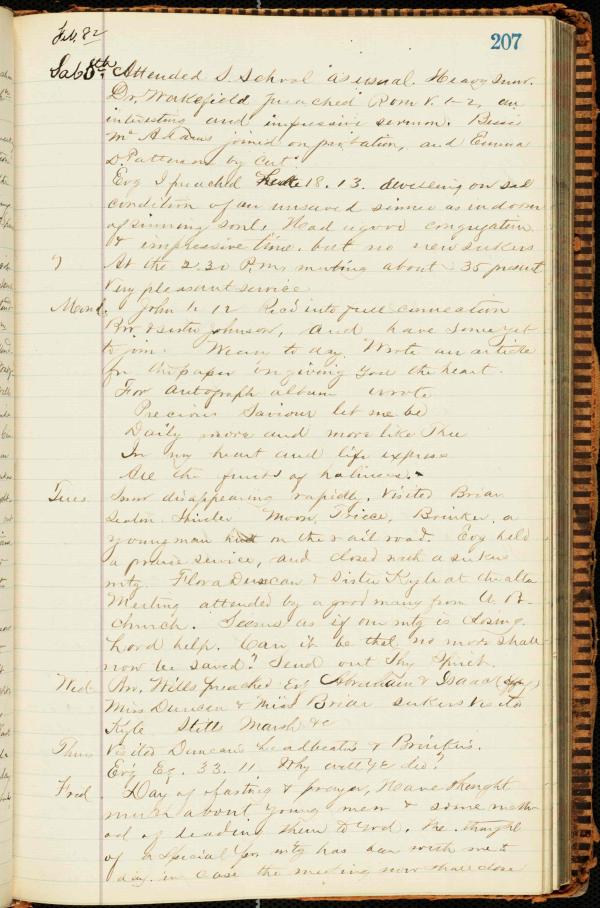 Feb. 82
207
Sab 5th. Attended S. School as usual. Heavy snow.
Dr. Wakefield preached Rom V. 1-2, an
interesting and impressive sermon. Bessie
McAdams joined on probation, and Emma
D. Patterson by Cert.
Evg I preached Luke 18. 13. dwelling on sad
condition of an unsaved sinner as in doom
of sinning soul. Had a good congregation
& impressive time. but no new seekers
At the 2.30 P.M. meeting about 35 present
Very pleasant service
Mond. John 1. 12 Rec'd into full connection
Bro. & sister Johnson, and have some yet
to join. Weary to day. Wrote an article
for the paper on giving God the heart.
For autograph album wrote
Precious Saviour let me be
Daily more and more like Thee
In my heart and life express
All the fruits of holiness.
Tues Snow disappearing rapidly. Visited Briar
Moon, Price, Brinker, a
young man hurt on the rail road. Evg held
a praise service, and closed with a seekers
mtg. Flora Duncan & Sister Kyle at the altar
Meeting attended by a good many from U. P.
Church. Seems as if our mtg is closing.
Lord help. Can it be that no more shall
now be saved? Send out Thy Spirit.
Wed Bro. Wills preached Evg Abraham & Isaac
Miss Duncan & Miss Briar seekers Visited
Kyle Stitts Marsh &c
Thurs Visited Duncans Leadbeaters & Brinkers.
Evg Ez. 33. 11. Why will ye die?
Fred Day of fasting & prayer, Have thought
much about young men & some meth-
od of leading them to God. The thought
of a special for mtg has been with me to
day. in case the meeting now shall close